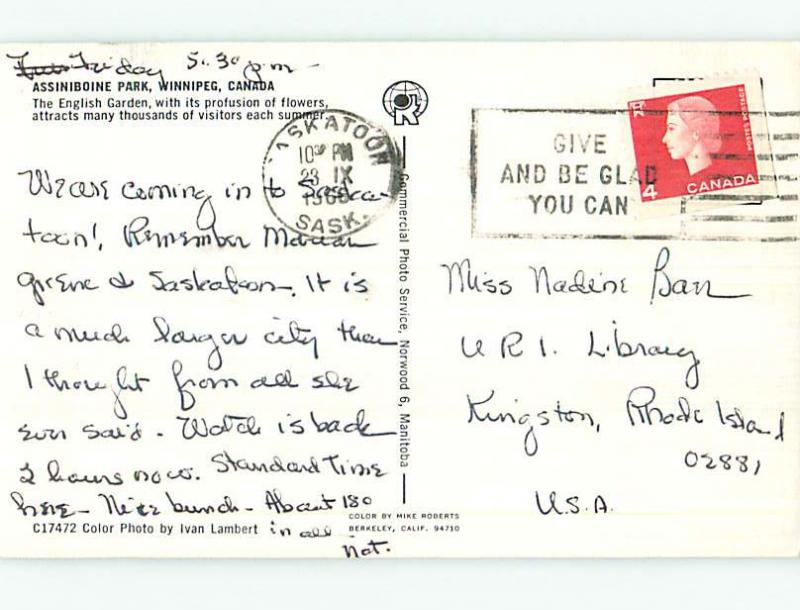 Friday 5:30 p.m.
ASSINIBOINE PARK, WINNIPEG, CANADA
The English Garden, with its profusion of flowers,
attracts many thousands of visitors each summer.
We are coming in to Saska-
toon! Remember Marian
Greene & Saskatoon. It is
a much larger city than
I thought from all she
ever said. Watch is back
2 hours now. Standard Time
here - Nice bunch - About 180
in all
C17472 Color Photo by Ivan Lambert
COLOR BY MIKE ROBERTS
BERKELEY, CALIF. 94710
Commercial Photo Service, Norwood 6, Manitoba
SASKATOON
PM
23 IX
SASK.
GIVE
AND BE GLAD
YOU CAN
POSTES POSTAGE
4
CANADA
Miss Nadine Barr
U R I. Library
Kingston, Rhode Island
02881
U.S.A.